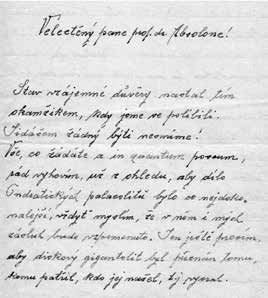 Velectěný pane prof. dr. Absolone!
Stav vzájemné důvěry nastal tím
okamžikem, kdy jsme se políbili.
žádný býti nesmíme!
Vše, co žádáte a in quantum possum,
rád vyhovím, už z ohledu, aby dílo
Ondratických palaeolitů bylo co nejdoko-
nalejší, vždyť myslím, že v něm i mých
zásluh bude vzpomenuto. Jen ještě prosím,
aby divkový gigantolit byl přičten tomu,
komu patřil, kdo jej našel, tý vyznal.